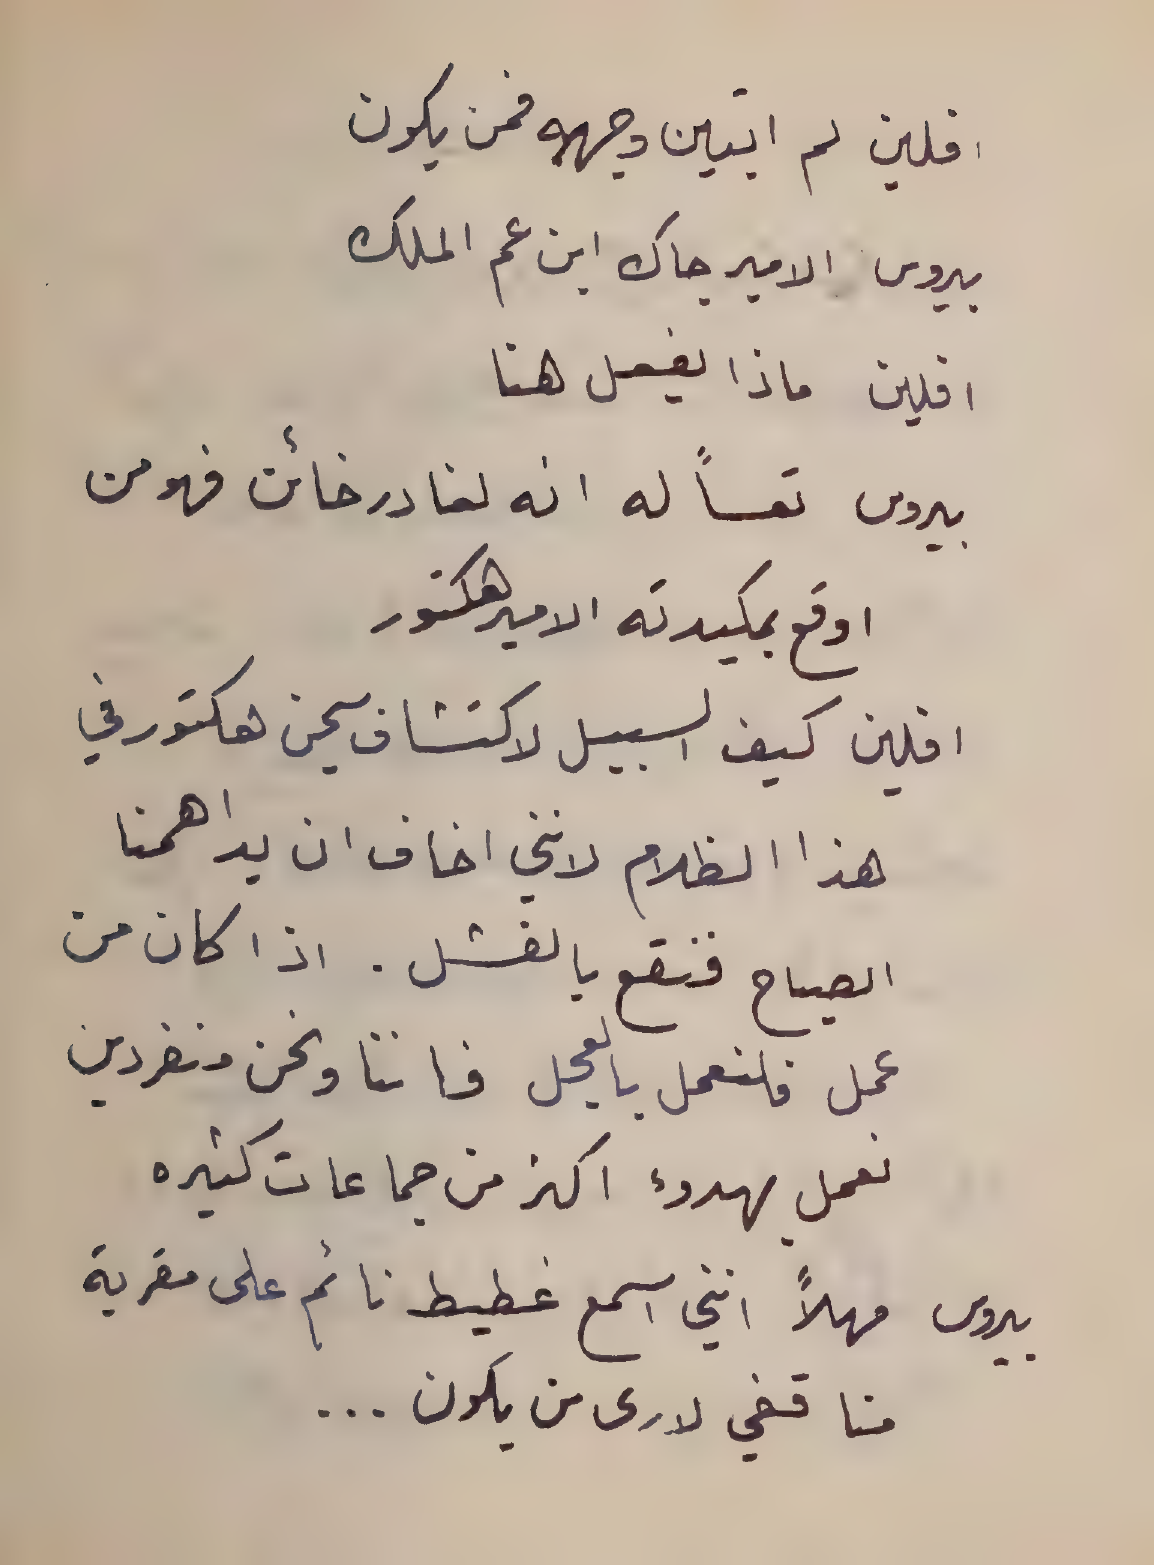 افلين لم اتبين وجهه فمن يكون
بيروس الامير جاك ابن عم الملك
افلين ماذا يفعل هنا
بيروس تعساً له انه لغادر خائن فهو من
اوقع بمكيدته الامير هكتور
افلين كيف السبيل لاكتشاف سجن هكتور في
هذا الظلام لانني اخاف ان يداهمنا
الصباح فنقع بالفشل . اذا كان من
عمل فلنعمل بالعجل فاننا ونحن منفردين
نعمل بهدوء اكثر من جماعات كثيره
بيروس مهلاً انني اسمع غطيط نائم على مقربة
منا قفي لارى من يكون ...